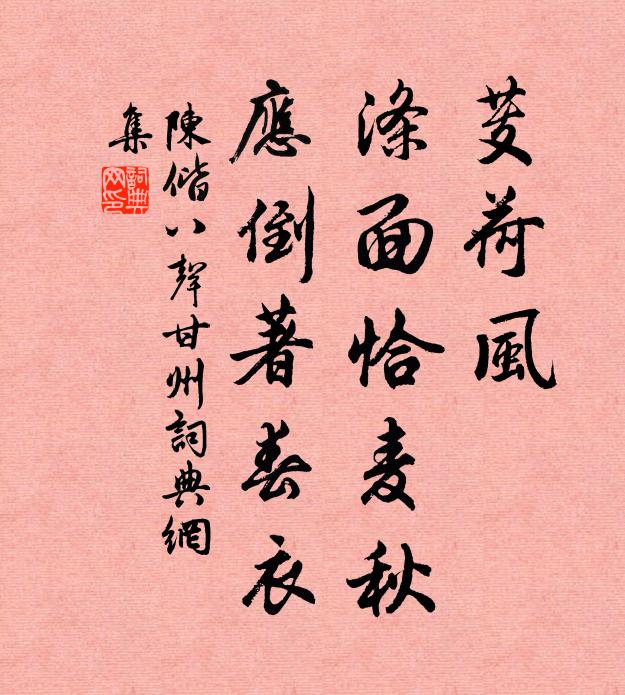 芰荷風
滌面恰麦秋
應倒著春衣
陳偕八聲甘州詞典網
集
詞典
网印